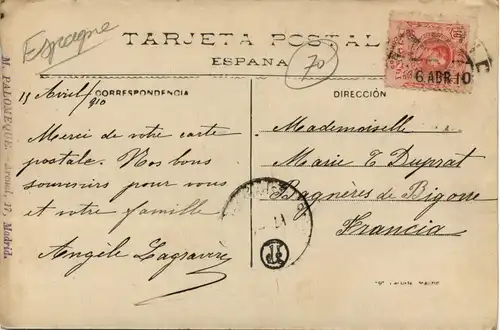 Espagne
TARJETA POSTAL
ESPAÑA
70
15 Avril/910
CORRESPONDENCIA
DIRECCIÓN
16 ABR 10
Merci de votre carte
postale. Nos bons
souvenirs pour vous
et votre famille
Angèle Lagravère
Mademoiselle
Marie T Duprat
Bagnères de Bigorre
Francia
M. PALOMEQUE.—Arenal, 17, Madrid.